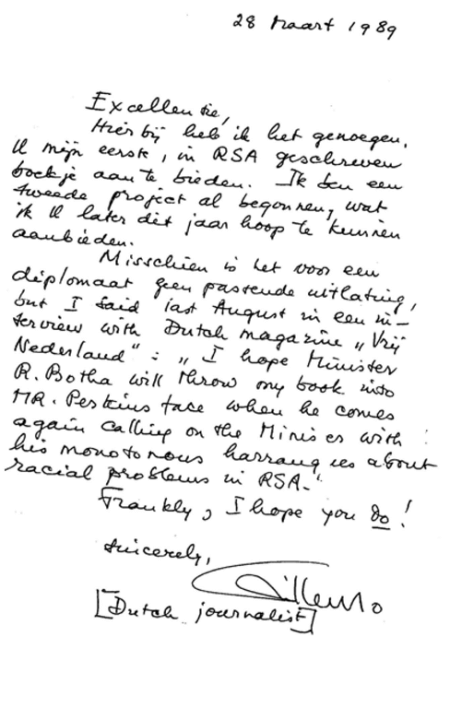 28 Maart 1989
Excellentie,
Hierbij heb ik het genoegen,
U mijn eerste, in RSA geschreven
boekje aan te bieden. Ik ben een
tweede project al begonnen, wat
ik U later dit jaar hoop te kunnen
aanbieden.
Misschien is het voor een
diplomaat geen passende uitlating,
but I said last August in een in-
terview with Dutch magazine „Vrij
Nederland": „I hope Minister
R. Botha will throw my book into
MR. Perkins face when he comes
again calling on the Minister with
his monotonous harrangues about
racial problems in RSA."
Frankly, I hope you do!
Sincerely,
[Dutch journalist]